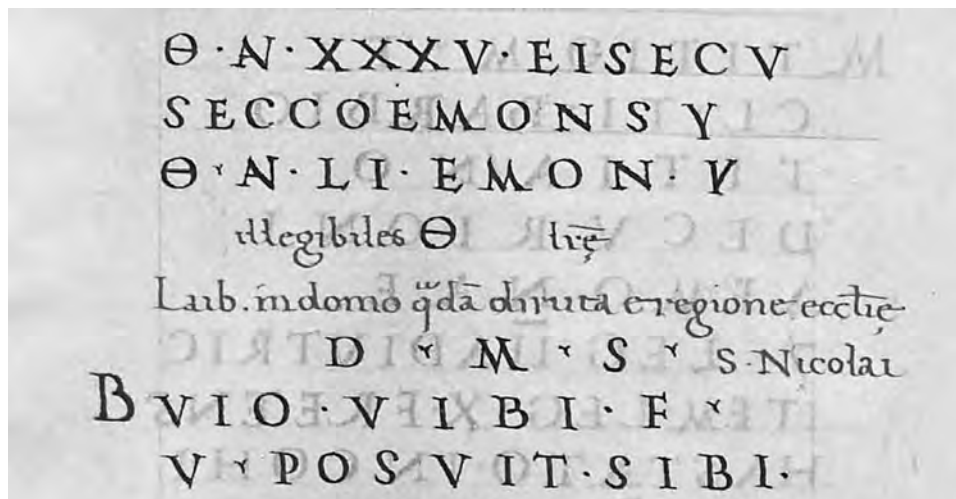 Θ · N · XXXV · EISECV
SECCOEMONS V
Θ · N · LI · EMON · V
illegibiles Θ lr̅ę
Laib. in domo q̈dā diruta e regione eccl̅ię
D · M · S · S. Nicolai
BVIO · VIBI · F ·
V · POSVIT · SIBI ·